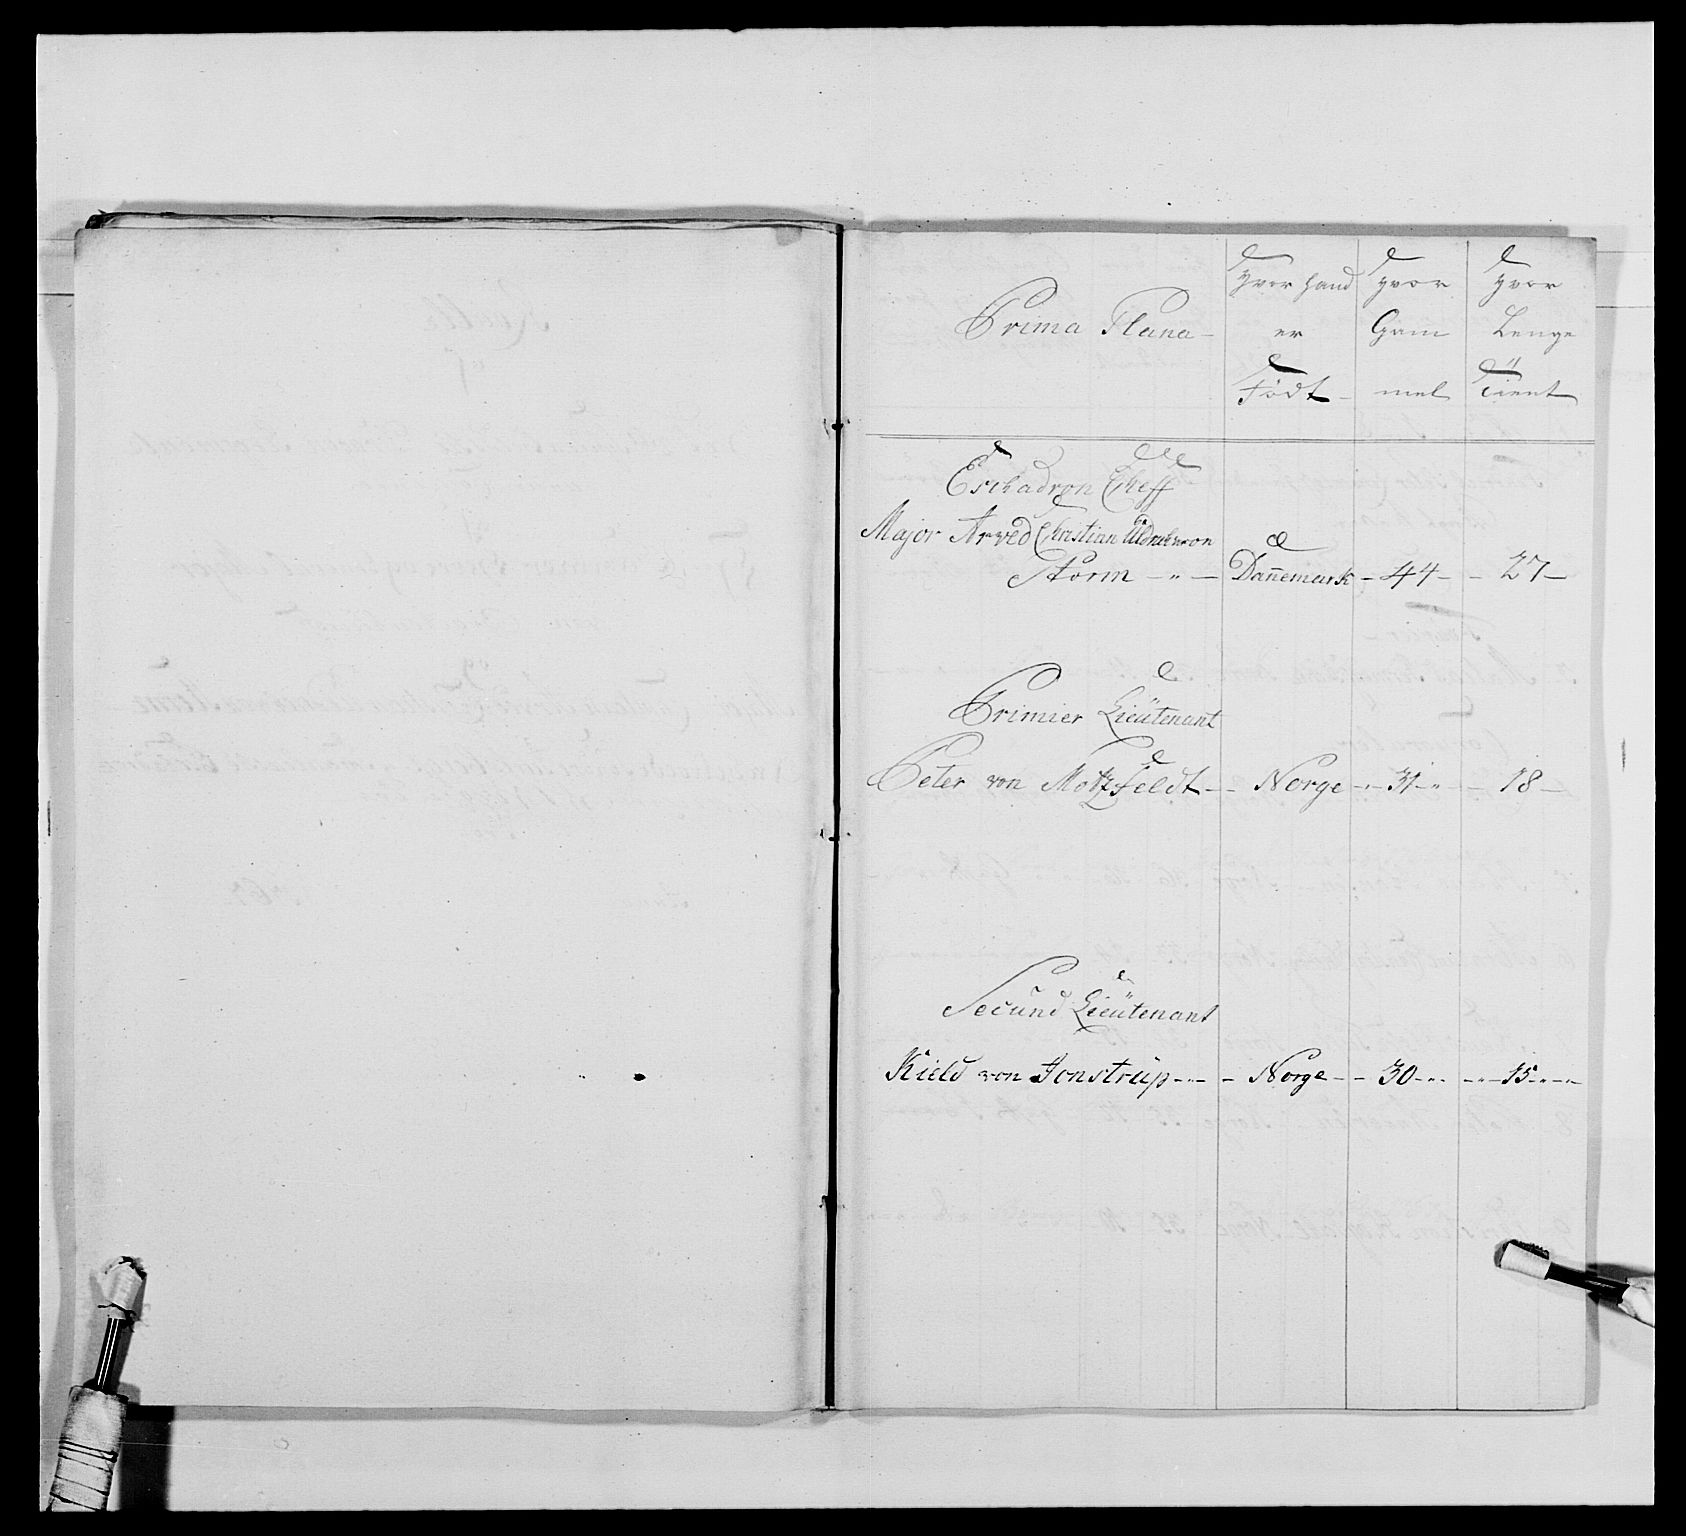 Prima Plana
Hvor hand er Födt
Hvor Gam mel
Hvor Lenge Tient
Eschadron Cheff
Major Arved Christian von
Storm - Dañemark - 44 - 27
Primier Lieütenant
Peter von Motzfeldt - Norge - 31 - 18
Secund Lieütenant
Kield von Jonstrüp - Norge - 30 - 15